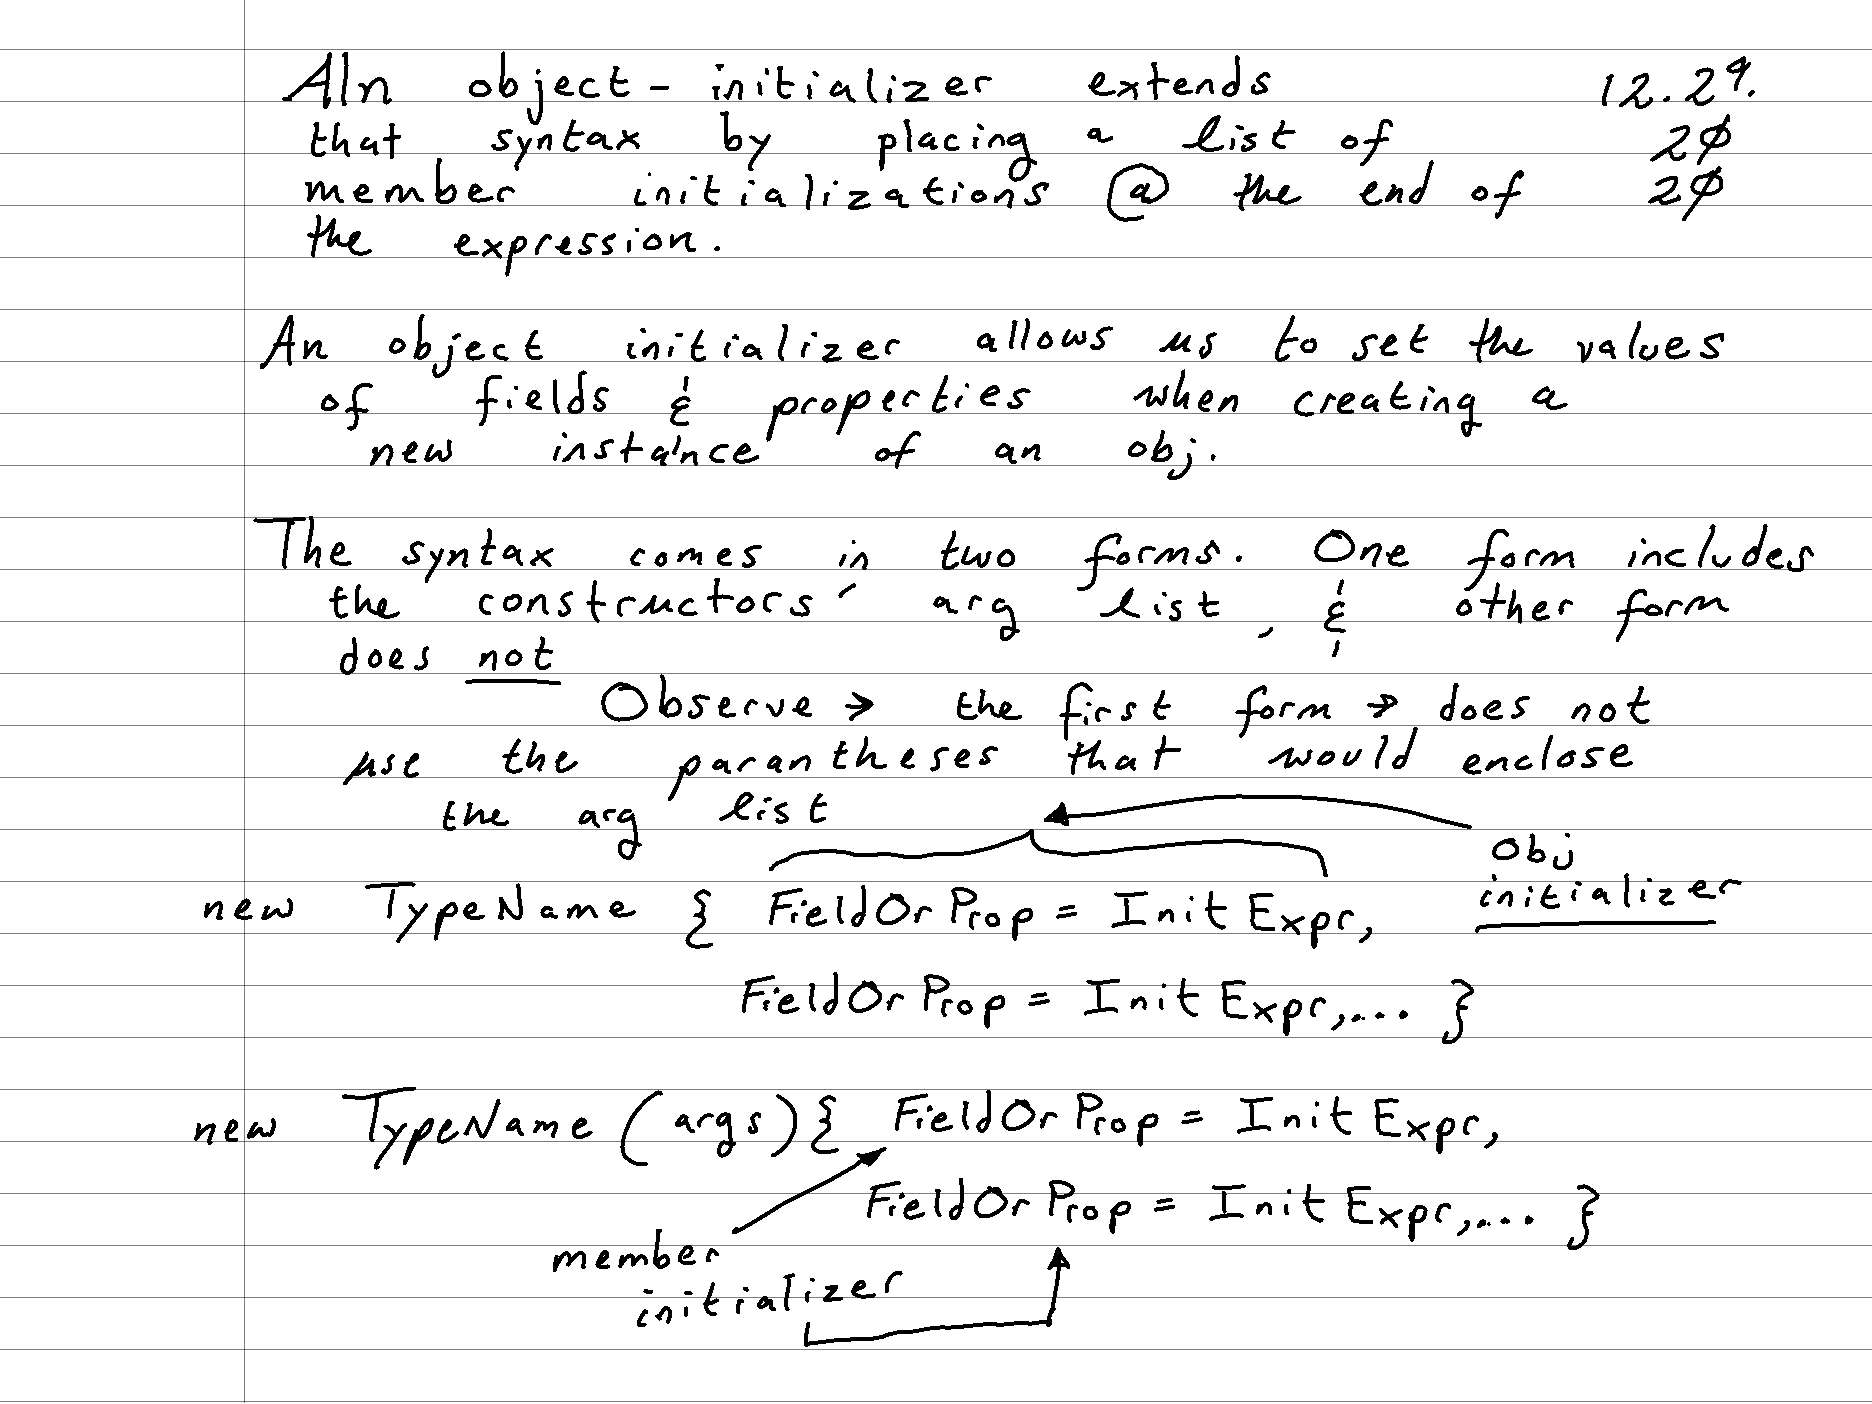 AIn object-initializer extends 12.29.
that syntax by placing a list of 2∅
member initializations @ the end of 2∅
the expression.
An object initializer allows us to set the values
of fields & properties when creating a
new instance of an obj.
The syntax comes in two forms. One form includes
the constructors' arg list, & other form
does not
Observe → the first form → does not
use the parantheses that would enclose
the arg list
Obj
initializer
new TypeName { FieldOrProp = InitExpr,
FieldOrProp = InitExpr,... }
new TypeName (args) { FieldOrProp = InitExpr,
FieldOrProp = InitExpr,... }
member
initializer